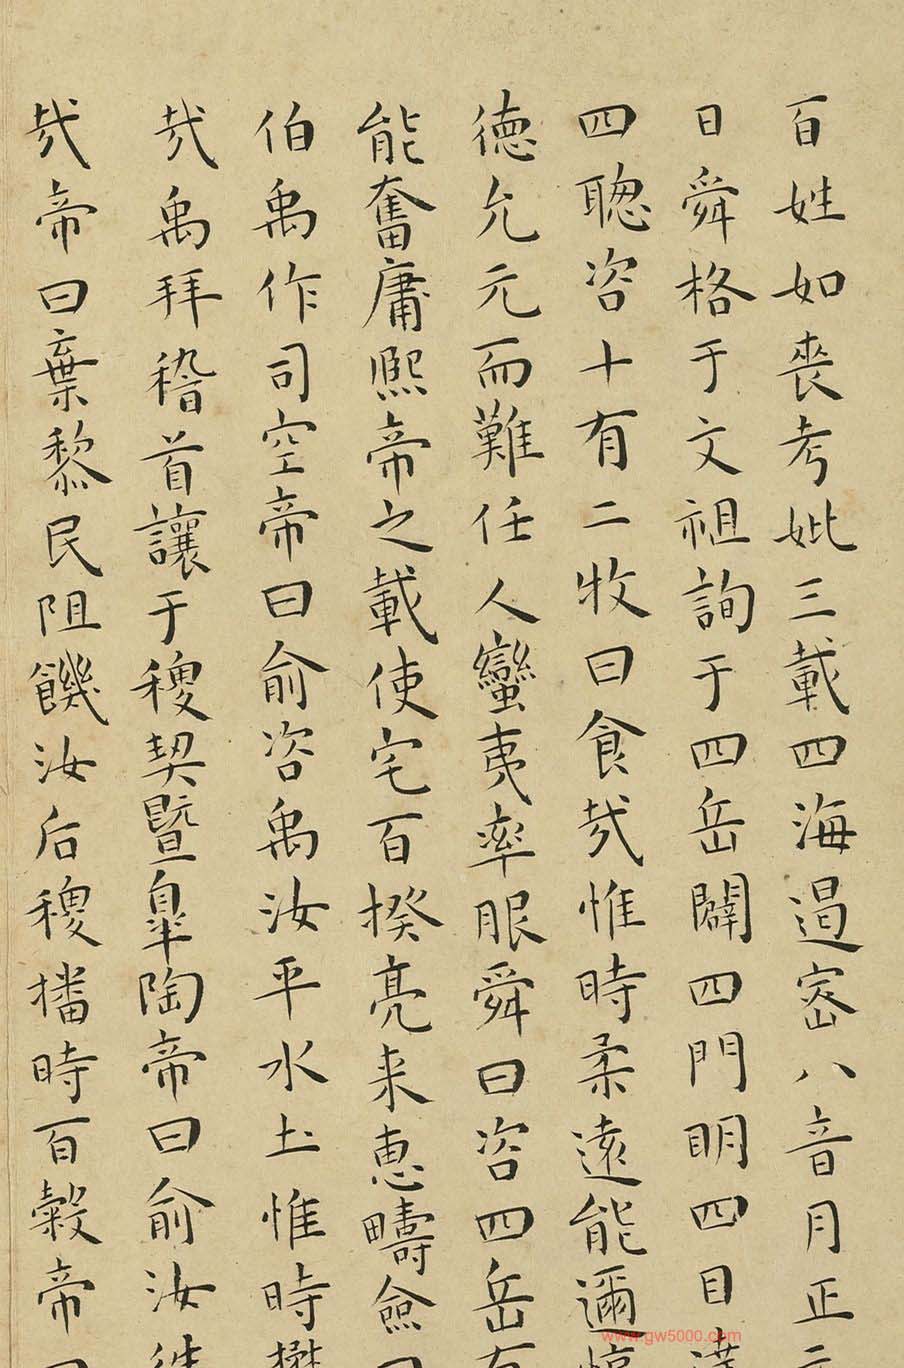 百姓如喪考妣三載四海遏密八音月正元
日舜格于文祖詢于四岳闢四門明四目達
四聰咨十有二牧曰食哉惟時柔遠能邇惇
德允元而難任人蠻夷率服舜曰咨四岳有
能奮庸熙帝之載使宅百揆亮来惠疇僉曰
伯禹作司空帝曰俞咨禹汝平水土惟時懋
哉禹拜稽首讓于稷契暨皐陶帝曰俞汝往
哉帝曰棄黎民阻饑汝后稷播時百穀帝曰
www.gw5000.com